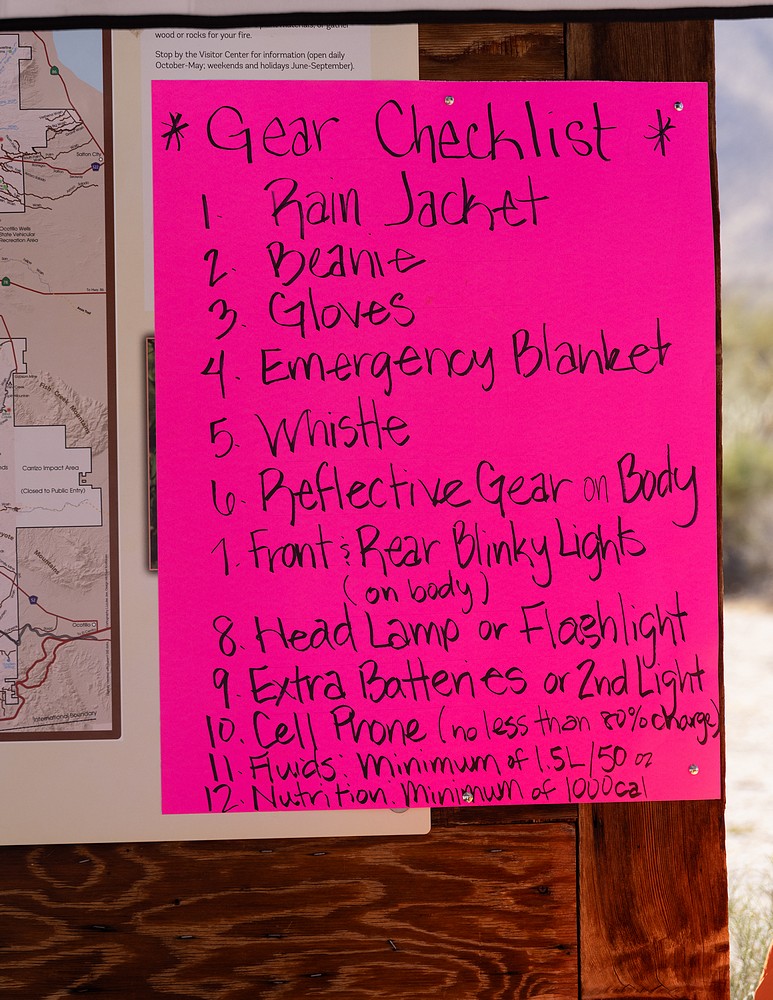 wood or rocks for your fire.
Stop by the Visitor Center for information (open daily
October-May; weekends and holidays June-September).
* Gear Checklist *
1. Rain Jacket
2. Beanie
3. Gloves
4. Emergency Blanket
5. Whistle
6. Reflective Gear on Body
7. Front & Rear Blinky Lights
(on body)
8. Head Lamp or Flashlight
9. Extra Batteries or 2nd Light
10. Cell Phone (no less than 80% charge)
11. Fluids: Minimum of 1.5L/50 oz
12. Nutrition: Minimum of 1000cal
Salton City
Ocotillo Wells
State Vehicular
Recreation Area
Fish Creek Mountains
Carrizo Impact Area
(Closed to Public Entry)
Mountains
Ocotillo
International Boundary